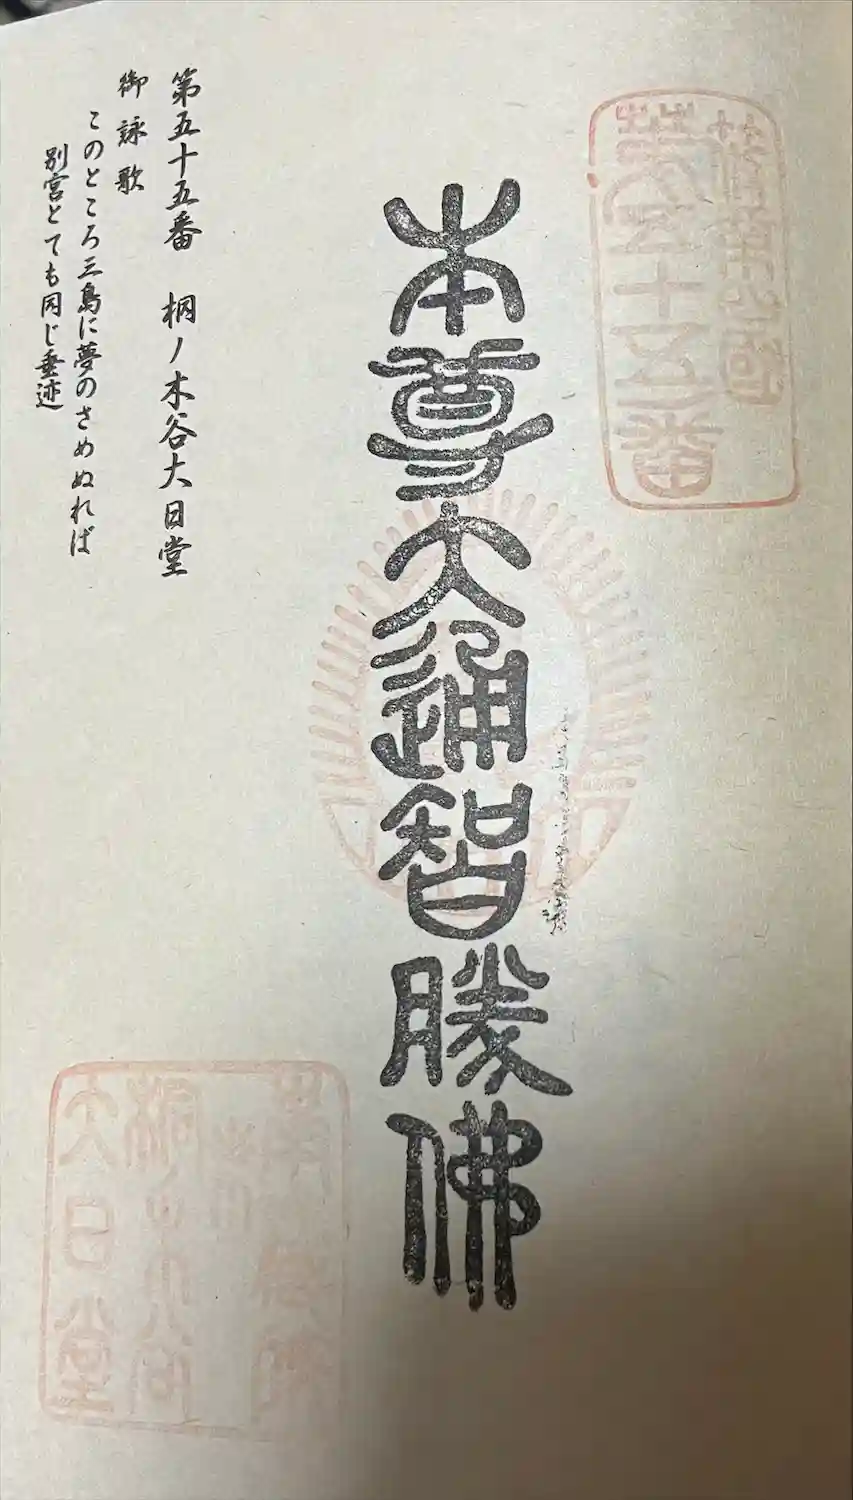 第五十五番
本尊大通智勝佛
第五十五番　桐ノ木谷大日堂
御詠歌
このところ三島に夢のさめぬれば
別宮とても同じ垂迹
桐ノ木谷
大日堂